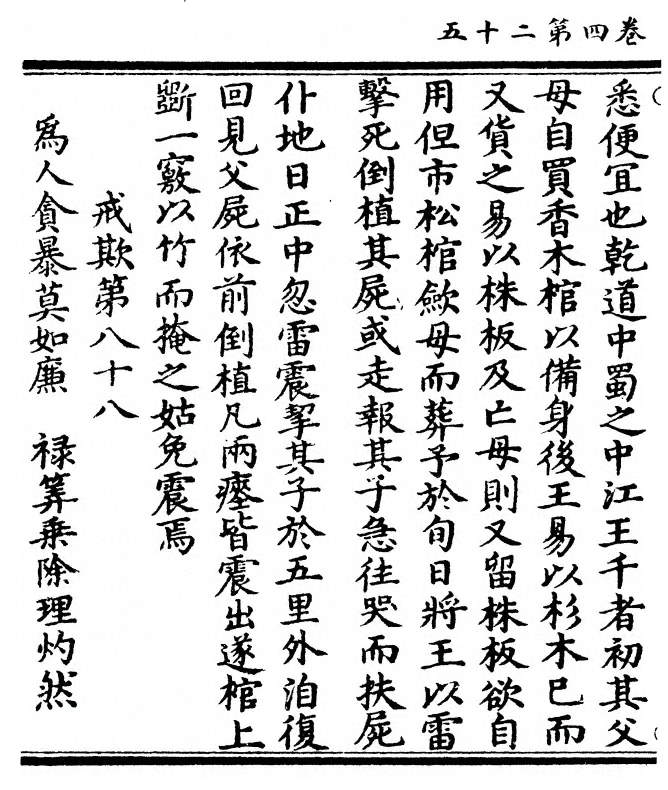 卷四第二十五
悉便冝也乾道中蜀之中江王千者初其父
母自買香木棺以備身後王易以杉木已而
又貨之易以株板及亡母則又留株板欲自
用但市松棺歛母而葬予於旬日將王以雷
擊死倒植其屍或走報其子急往哭而扶屍
仆地日正中忽雷震挈其子於五里外洎復
回見父屍依前倒植凡兩瘞皆震出遂棺上
斵一竅以竹而掩之姑免震焉
戒欺第八十八
爲人貪暴莫如廉 禄筭乗除理灼然